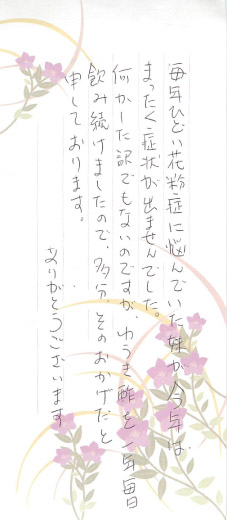 毎年ひどい花粉症に悩んでいた娘が今年は
まったく症状が出ませんでした。
何かした訳でもないのですが、ゆうき酢を一年毎日
飲み続けましたので、多分、そのおかげだと
申しております。
ありがとうございます